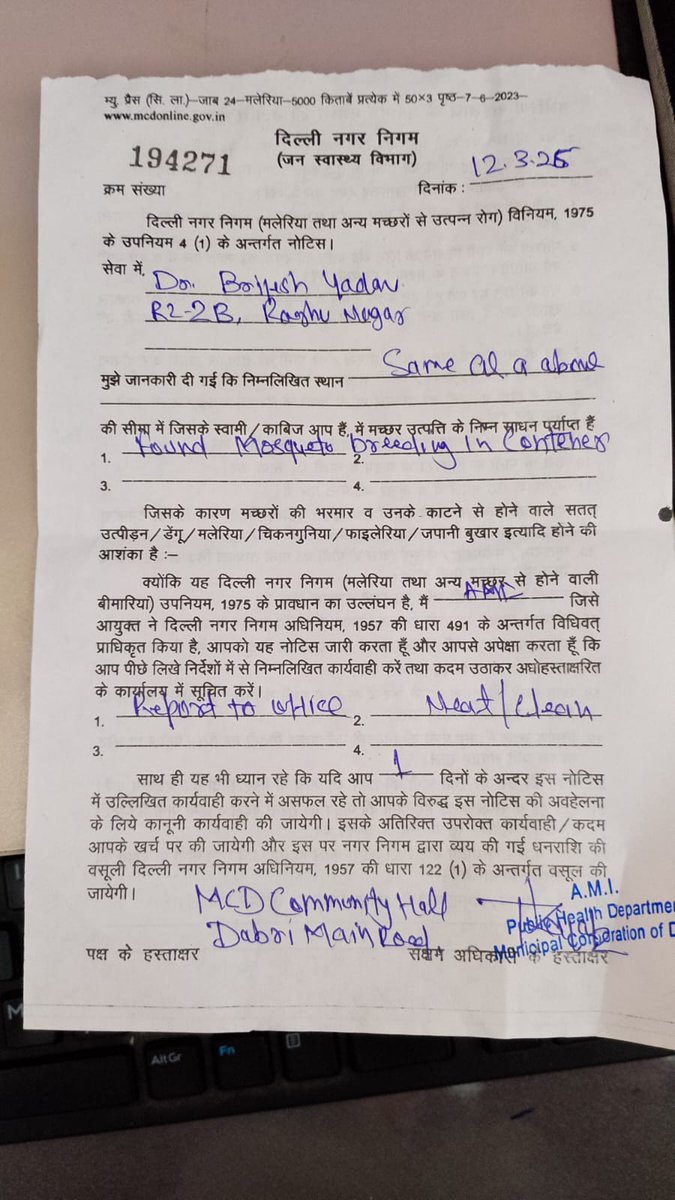 म्यु. प्रैस (सि. ला.)–जाब 24–मलेरिया–5000 किताबें प्रत्येक में 50×3 पृष्ठ–7–6–2023–
www.mcdonline.gov.in
दिल्ली नगर निगम
194271 (जन स्वास्थ्य विभाग) 12.3.25
क्रम संख्या दिनांक :
दिल्ली नगर निगम (मलेरिया तथा अन्य मच्छरों से उत्पन्न रोग) विनियम, 1975
के उपनियम 4 (1) के अन्तर्गत नोटिस।
सेवा में, Dr. Brijesh Yadav
RZ-2B, Raghu Nagar
मुझे जानकारी दी गई कि निम्नलिखित स्थान Same al a above
की सीमा में जिसके स्वामी/काबिज आप हैं, में मच्छर उत्पत्ति के निम्न साधन पर्याप्त हैं
1. Found Mosqueto breeding in Contener 2.
3. 4.
जिसके कारण मच्छरों की भरमार व उनके काटने से होने वाले सतत्
उत्पीड़न/डेंगू/मलेरिया/चिकनगुनिया/फाइलेरिया/जपानी बुखार इत्यादि होने की
आशंका है :–
क्योंकि यह दिल्ली नगर निगम (मलेरिया तथा अन्य मच्छर से होने वाली
बीमारिया) उपनियम, 1975 के प्रावधान का उल्लंघन है, मैं AMI जिसे
आयुक्त ने दिल्ली नगर निगम अधिनियम, 1957 की धारा 491 के अन्तर्गत विधिवत्
प्राधिकृत किया है, आपको यह नोटिस जारी करता हूँ और आपसे अपेक्षा करता हूँ कि
आप पीछे लिखे निर्देशों में से निम्नलिखित कार्यवाही करें तथा कदम उठाकर अधोहस्ताक्षरित
के कार्यालय में सूचित करें।
1. Report to office 2. Neat/Clean
3. 4.
साथ ही यह भी ध्यान रहे कि यदि आप 1 दिनों के अन्दर इस नोटिस
में उल्लिखित कार्यवाही करने में असफल रहे तो आपके विरुद्ध इस नोटिस की अवहेलना
के लिये कानूनी कार्यवाही की जायेगी। इसके अतिरिक्त उपरोक्त कार्यवाही/कदम
आपके खर्च पर की जायेगी और इस पर नगर निगम द्वारा व्यय की गई धनराशि की
वसूली दिल्ली नगर निगम अधिनियम, 1957 की धारा 122 (1) के अन्तर्गत वसूल की
जायेगी।
MCD Community Hall
Dabri Main Road
A.M.I.
Public Health Departme
Municipal Corporation of D
पक्ष के हस्ताक्षर सक्षम अधिकारी के हस्ताक्षर
AltGr Fn